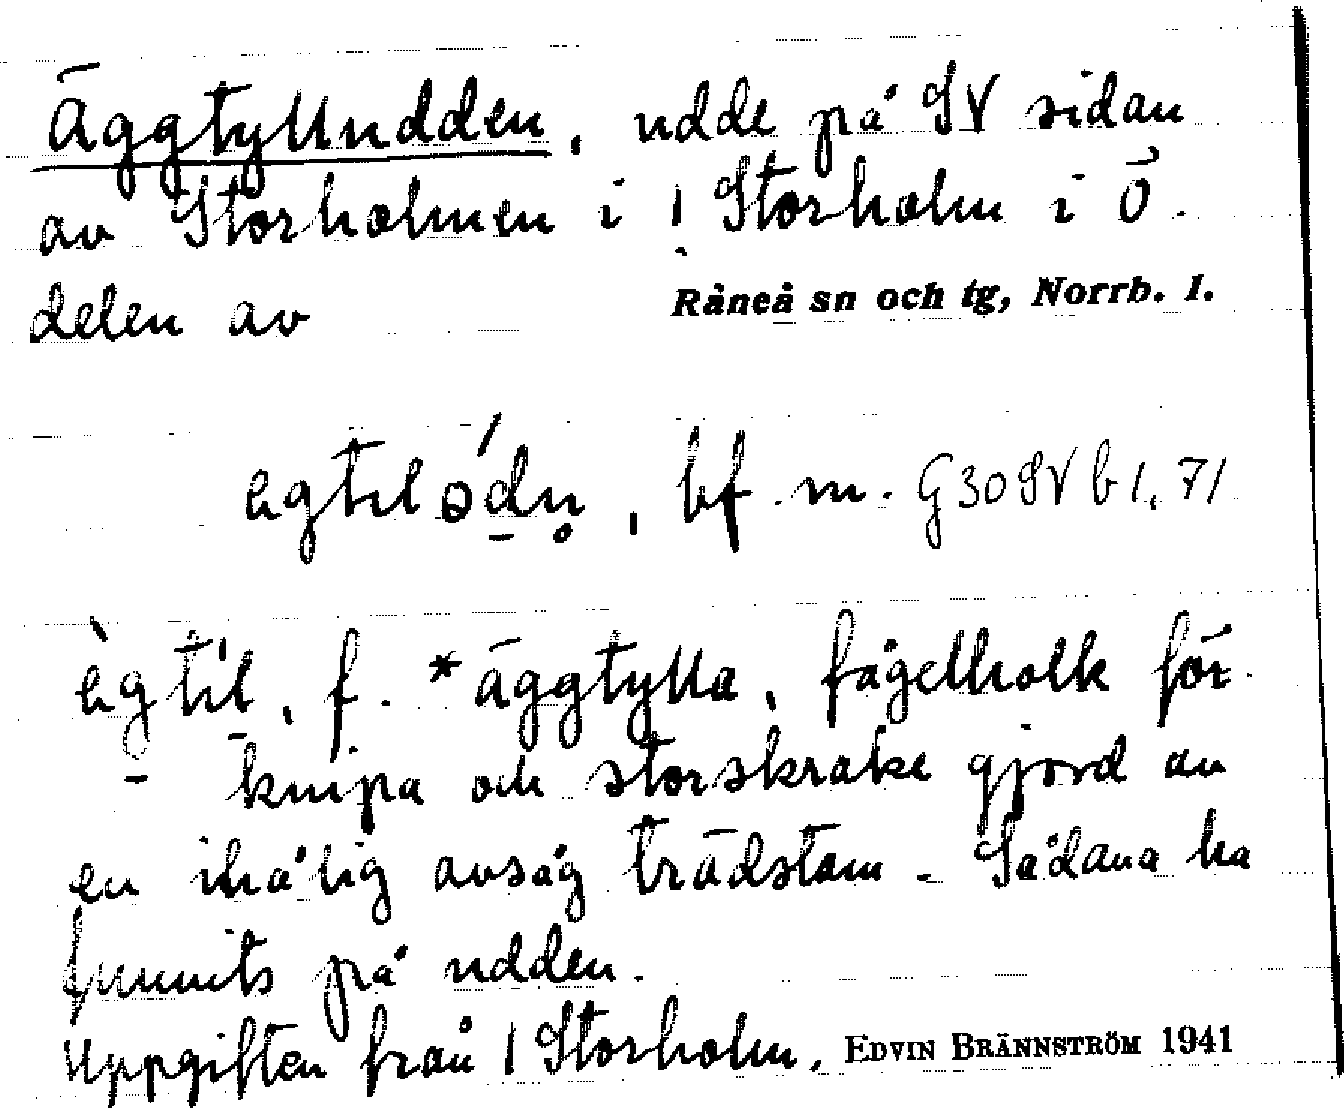 Äggtylludden, udde på SV sidan
av Storholmen i 1 Storholm i Ö.
delen av Råneå sn och tg, Norrb. l.
bf. m. G30SV b 1, 71
f. *äggtylla, fågelholk för
knipa och storskrake gjord av
en ihålig avsåg trädstam - Sådana ha
funnits på udden.
Uppgiften från 1 Storholm. EDVIN BRÄNNSTRÖM 1941